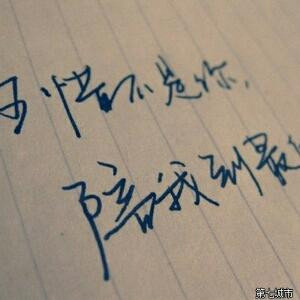 可惜不是你,
陪我到最
第七城市